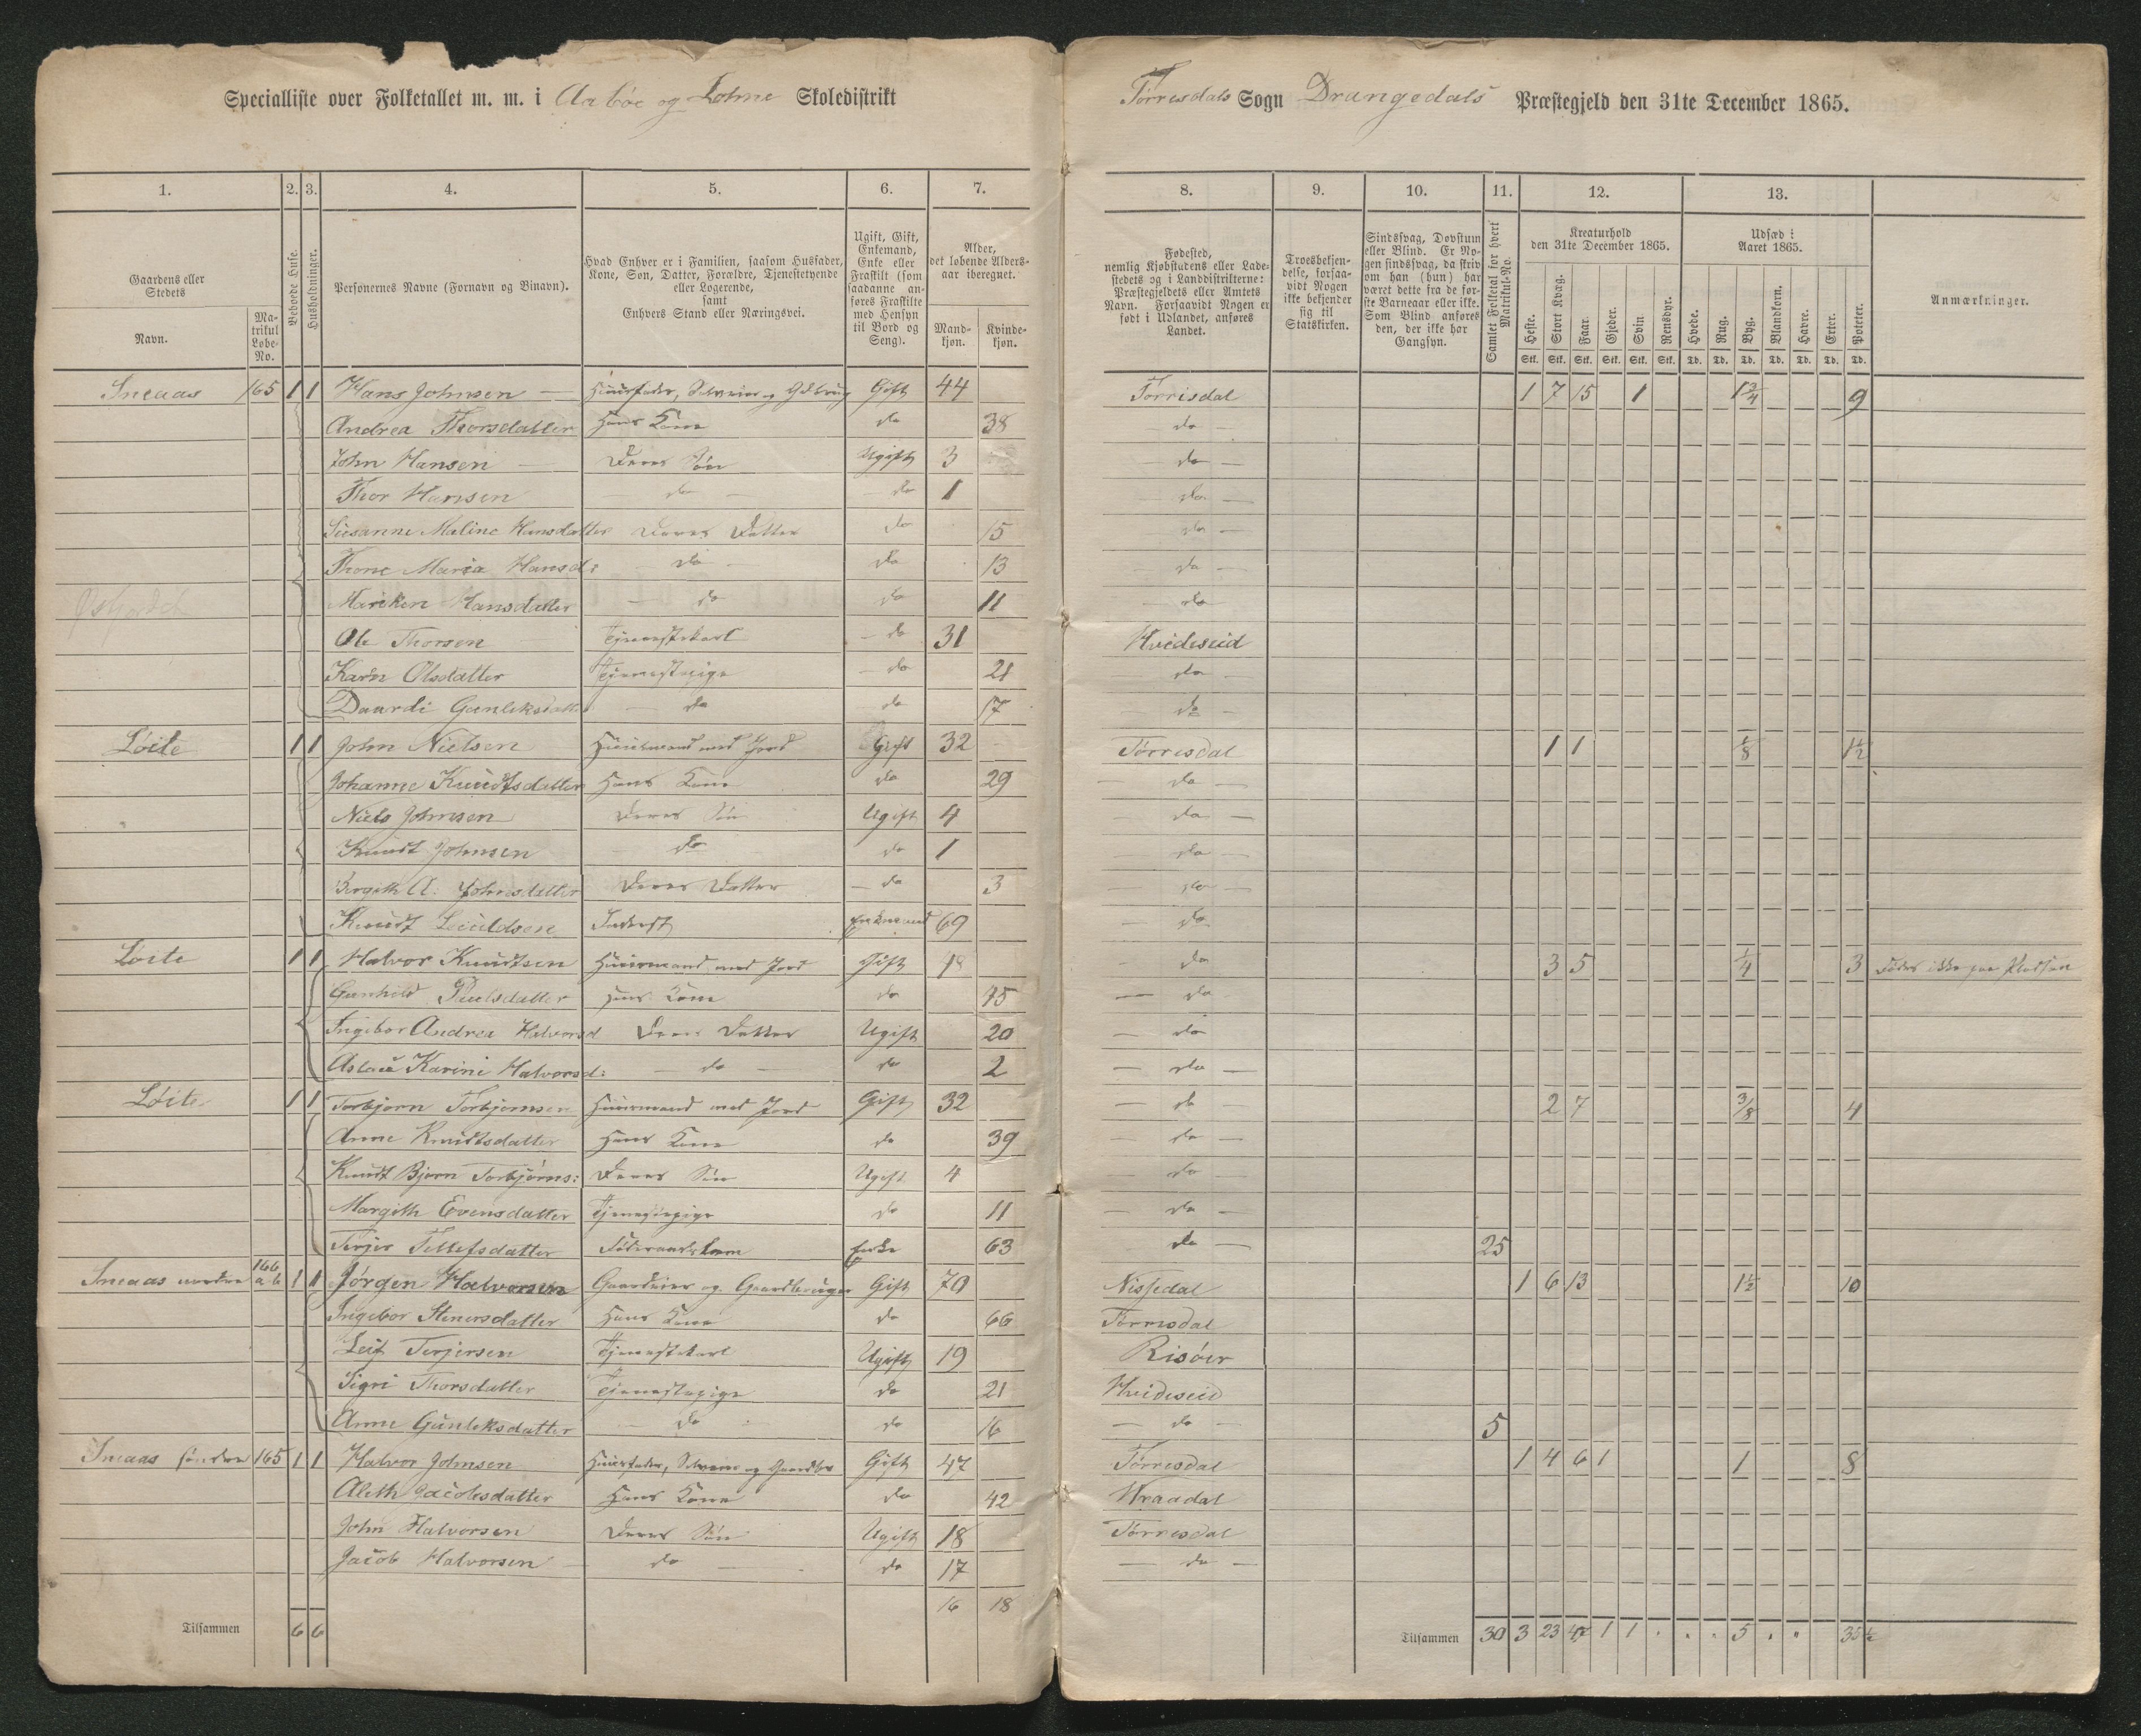 Specialliste over Folketallet m. m. i Aabøe og Lohne Skoledistrikt
Tørresdals Sogn Drangedals Præstegjeld den 31te December 1865.
1. 2. 3. 4. 5. 6. 7. 8. 9. 10. 11. 12. 13.
Gaardens eller Stedets
Navn.
Matrikul Løbe-No.
Beboede Huse.
Husholdninger.
Personernes Navne (Fornavn og Binavn).
Hvad Enhver er i Familien, saasom Husfader, Kone, Søn, Datter, Forældre, Tjenestetyende eller Logerende, samt Enhvers Stand eller Næringsvei.
Ugift, Gift, Enkemand, Enke eller Fraskilt (som saadanne anføres Fraskilte med Hensyn til Bord og Seng).
Alder, det løbende Alders-aar iberegnet.
Mand-kjøn.
Kvinde-kjøn.
Fødested, nemlig Kjøbstadens eller Ladestedets og i Landdistrikterne: Præstegjeldets eller Amtets Navn. Forsaavidt Nogen er født i Udlandet, anføres Landet.
Troesbekjendelse, forsaavidt Nogen ikke bekjender sig til Statskirken.
Sindssvag, Døvstum eller Blind. Er Nogen sindssvag, da skriv om han (hun) har været dette fra de første Barneaar eller ikke. Som Blind anføres den, der ikke har Gangsyn.
Samlet Folketal for hvert Matrikul-No.
Kreaturhold den 31te December 1865.
Heste. Stort Kvæg. Faar. Gjeder. Svin. Rensdyr.
Udsæd i Aaret 1865.
Hvede. Rug. Byg. Blandkorn. Havre. Erter. Poteter.
Stk. Stk. Stk. Stk. Stk. Stk. Td. Td. Td. Td. Td. Td. Td.
Anmærkninger.
Sneaas 165 1 1 Hans Johnsen Huusfader, Selveier og Gdbrug Gift 44 Torrisdal 1 7 15 1 1 3/4 9
Andrea Thorsdatter Hans Kone do 38 do
John Hansen Deres Søn Ugift 3 do
Thor Hansen do do 1 do
Susanne Maline Hansdatter Deres Datter do 15 do
Thone Maria Hansd: do do 13 do
Mariken Hansdatter do do 11 do
Ole Thorsen Tjenestekarl do 31 Hvideseid
Karn Olsdatter Tjenestepige do 21 do
Daardi Gunleksdatter do do 17 do
Løite 1 1 John Nielsen Huusmand med Jord Gift 32 Tørresdal 1 1 1/8 1 1/2
Johanne Knudtsdatter Hans Kone do 29 do
Niels Johnsen Deres Søn Ugift 4 do
Knudt Johnsen do do 1 do
Bergith A: Johnsdatter Deres Datter do 3 do
Knudt Enkemand 69 do
Løite 1 1 Halvor Knudtsen Huusmand med Jord Gift do 3 5 1/4 3 Fødes ikke paa Pladsen
Gunhild Paulsdatter Hans Kone do 45 do
Ingebor Andrea Halvorsd Deres Datter Ugift 20 do
Aslau Karine Halvorsd: do do 2 do
Løite 1 1 Torbjørn Torbjørnsen Huusmand med Jord Gift 32 do 2 7 3/8 4
Anne Knudtsdatter Hans Kone do 39 do
Knudt Bjørn Torbjørns: Deres Søn Ugift 4 do
Margith Evensdatter Tjenestepige do 11 do
Terjer Tellefsdatter Føderaadskone Enke 63 do 25
Sneaas nordre 166 a b 1 1 Jørgen Halvorsen Gaardeier og Gaardbruger Gift 70 Nissedal 1 6 13 1 1/2 10
Ingebor Stenersdatter Hans Kone do 66 Tørresdal
Leif Terjersen Tjenestekarl Ugift 19 Risøer
Sigri Thorsdatter Tjenestepige do 21 Hvideseid
Anne Gunleksdatter do do 16 do 5
Sneaas søndre 165 1 1 Halvor Johnsen Huusfader, Selveier og Gaardbr Gift 47 Tørresdal 1 4 6 1 1 8
Aleth Jacobsdatter Hans Kone do 42 Hraadal
John Halvorsen Deres Søn Ugift 18 Tørresdal
Jacob Halvorsen do do 17 do
16 18
Tilsammen 6 6
Tilsammen 30 3 23 47 1 1 5 35 1/2